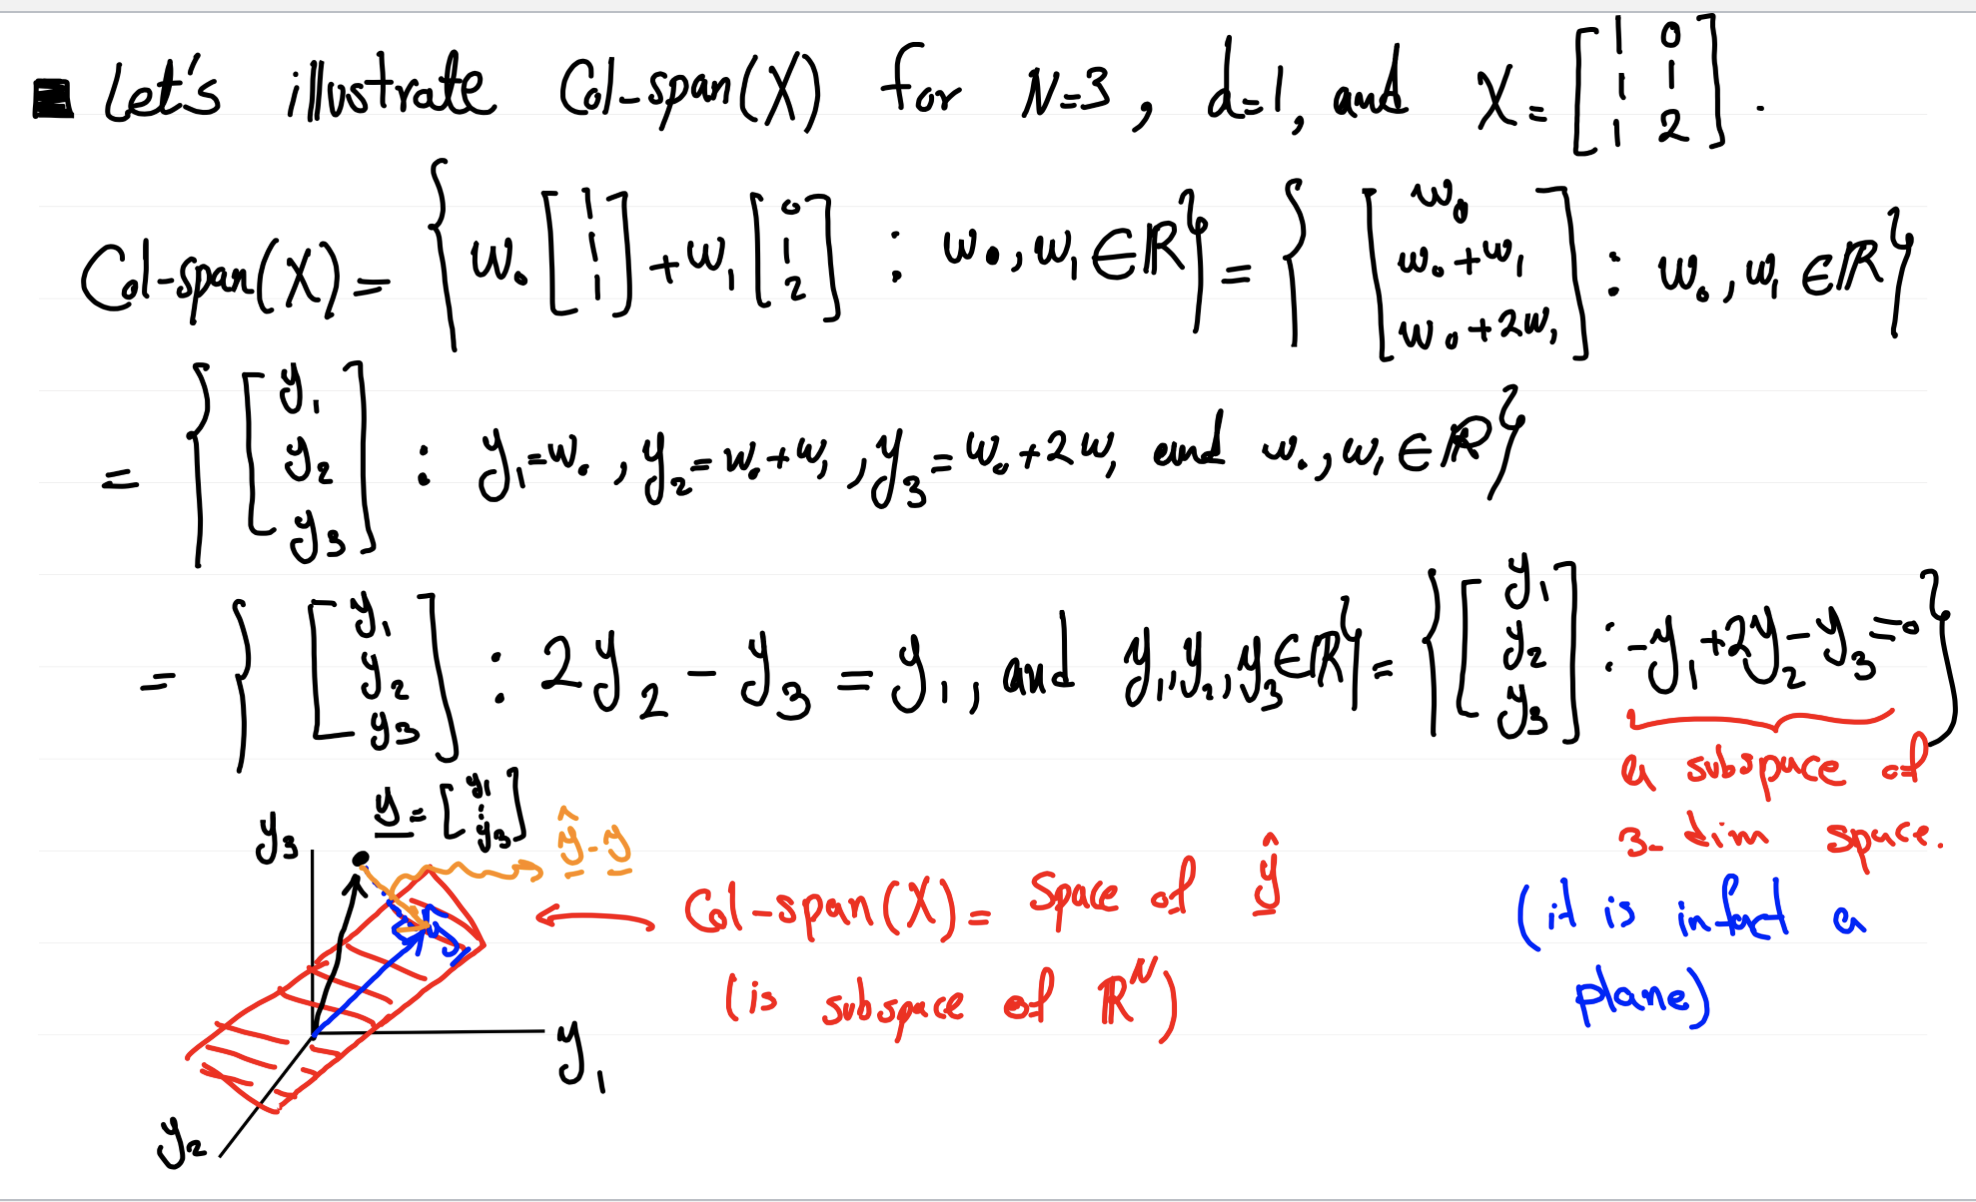 ■ Let's illustrate Col-span(X) for N=3, d=1, and X = [1 0; 1 1; 1 2].
Col-span(X) = { w₀ [1; 1; 1] + w₁ [0; 1; 2] : w₀, w₁ ∈ ℝ } = { [w₀; w₀+w₁; w₀+2w₁] : w₀, w₁ ∈ ℝ }
= { [y₁; y₂; y₃] : y₁=w₀, y₂=w₀+w₁, y₃=w₀+2w₁ and w₀, w₁ ∈ ℝ }
= { [y₁; y₂; y₃] : 2y₂ - y₃ = y₁, and y₁, y₂, y₃ ∈ ℝ } = { [y₁; y₂; y₃] : -y₁+2y₂-y₃=0 }
a subspace of
3-dim space.
(it is infact a
plane)
y₃
y = [y₁; ⋮; y₃]
ŷ - y
Col-span(X) = Space of ŷ
(is subspace of ℝᴺ)
y₁
y₂